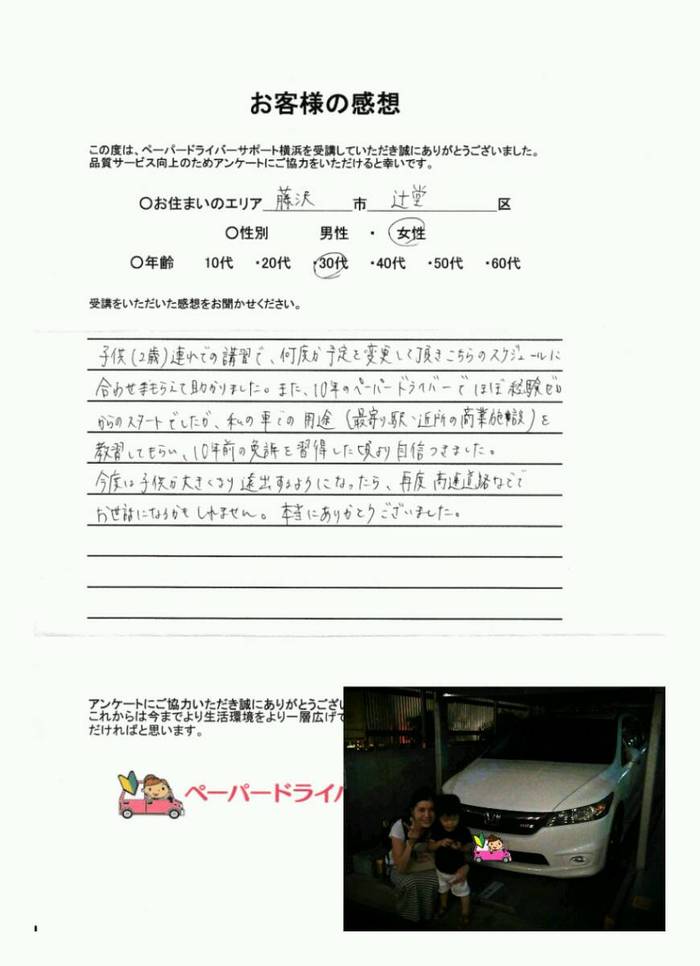 お客様の感想
この度は、ペーパードライバーサポート横浜を受講していただき誠にありがとうございました。
品質サービス向上のためアンケートにご協力をいただけると幸いです。
〇お住まいのエリア 藤沢 市 辻堂 区
〇性別 男性 ・ 女性
〇年齢 10代 ・20代 ・30代 ・40代 ・50代 ・60代
受講をいただいた感想をお聞かせください。
子供(2歳)連れでの講習で、何度か予定を変更して頂きこちらのスケジュールに
合わせてもらえて助かりました。また、10年のペーパードライバーでほぼ経験ゼロ
からのスタートでしたが、私の車での用途(最寄り駅・近所の商業施設)を
教習してもらい、10年前の免許を習得した頃より自信つきました。
今度は子供が大きくなり遠出するようになったら、再度高速道路などで
お世話になるかもしれません。本当にありがとうございました。
アンケートにご協力いただき誠にありがとうござい
これからは今までより生活環境をより一層広げて
だければと思います。
ペーパードライバ